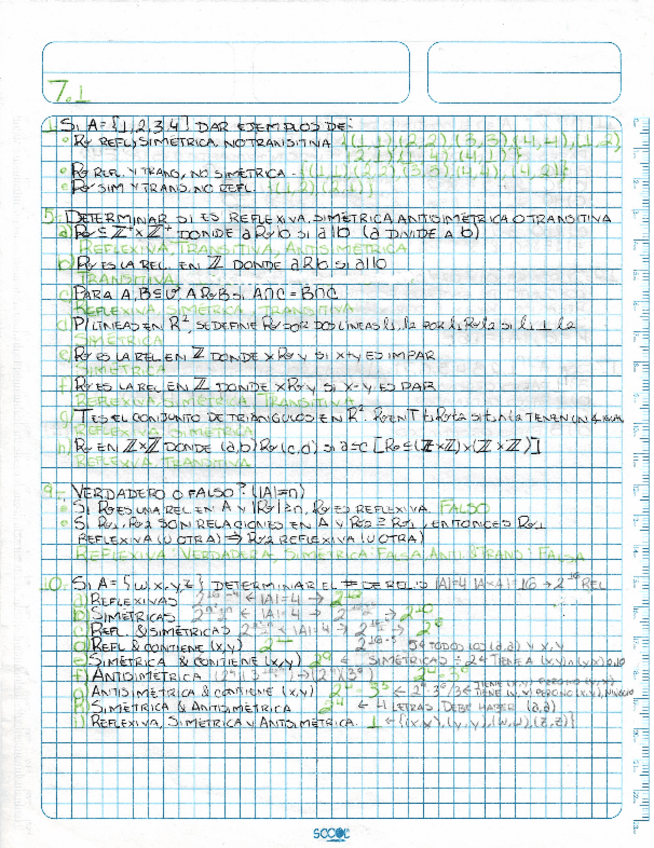 7.1
1. SI A={1,2,3,4} DAR EJEMPLOS DE:
• R REFL, SIMÉTRICA, NO TRANSITIVA {(1,1),(2,2),(3,3),(4,4),(1,2),
(2,1),(1,4),(4,1)}
• R REFL. Y TRANS, NO SIMÉTRICA - {(1,1)(2,2)(3,3)(4,4),(4,2)}
• R SIM Y TRANS. NO REFL. {(1,2)(2,1)}
5. DETERMINAR SI ES REFLEXIVA, SIMÉTRICA ANTISIMÉTRICA O TRANSITIVA
a) R ⊆ Z⁺×Z⁺ DONDE aRb si a|b (a DIVIDE A b)
REFLEXIVA, TRANSITIVA, ANTISIMÉTRICA
b) R ES LA REL. EN Z DONDE aRb si a|b
TRANSITIVA
c) PARA A,B⊆U A R B SI A∩C = B∩C
REFLEXIVA, SIMÉTRICA, TRANSITIVA
d) P/ LÍNEAS EN R², SE DEFINE R POR DOS LÍNEAS l₁, l₂ POR l₁ R l₂ SI l₁ ⊥ l₂
SIMÉTRICA
e) R ES LA REL EN Z DONDE x R y SI x+y ES IMPAR
SIMÉTRICA
f) R ES LA REL EN Z DONDE x R y SI x-y ES PAR
REFLEXIVA SIMÉTRICA TRANSITIVA
g) T ES EL CONJUNTO DE TRIÁNGULOS EN R². R en T t₁ R t₂ si t₁ t₂ TIENEN UN
REFLEXIVA, SIMÉTRICA
h) R EN Z×Z DONDE (a,b) R (c,d) si a≤c [R⊆(Z×Z)×(Z×Z)]
REFLEXIVA, TRANSITIVA
9. VERDADERO O FALSO? (|A|=n)
• SI R ES UNA REL EN A Y |R|≥n, R ES REFLEXIVA. FALSO
• SI R₁, R₂ SON RELACIONES EN A Y R₂ ⊇ R₁, ENTONCES R₁
REFLEXIVA (U OTRA) ⇒ R₂ REFLEXIVA (U OTRA)
REFLEXIVA: VERDADERA, SIMÉTRICA: FALSA ANTI & TRANS: FALSA
10. SI A={w,x,y,z} DETERMINAR EL # DE RELS |A|=4 |A×A|=16 → 2¹⁶ REL
a) REFLEXIVAS ← |A|=4 →
b) SIMÉTRICAS ← |A|=4 → 2¹⁰
c) REFL. & SIMÉTRICAS ← |A|=4 → 2⁶
d) REFL & CONTIENE (x,y) 2¹⁶⁻⁵ TODOS LOS (a,a) Y x,y
e) SIMÉTRICA & CONTIENE (x,y) 2⁹ ← SIMÉTRICAS ÷ 2
f) ANTISIMÉTRICA 2⁴·3⁶
g) ANTISIMÉTRICA & CONTIENE (x,y) 2⁴·3⁵
h) SIMÉTRICA & ANTISIMÉTRICA 2⁴ ← 4 LETRAS. DEBE HABER (a,a)
i) REFLEXIVA, SIMÉTRICA Y ANTISIMÉTRICA. 1 ← {(x,x),(y,y),(w,w),(z,z)}
SCOOL